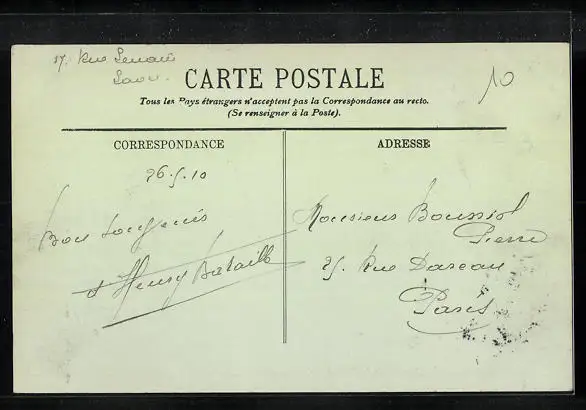 17. Rue
Laon.
CARTE POSTALE
10
Tous les Pays étrangers n'acceptent pas la Correspondance au recto.
(Se renseigner à la Poste).
CORRESPONDANCE
26.5.10
Bon Souvenir
d'Henry Bataille
ADRESSE
Monsieur Boussiol
Pierre
25. Rue Dareau
Paris